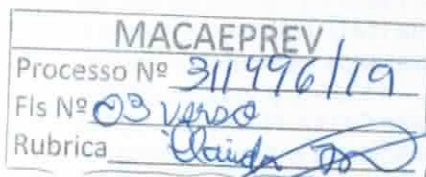 MACAEPREV
Processo Nº 311496/19
Fls Nº 03 verso
Rubrica